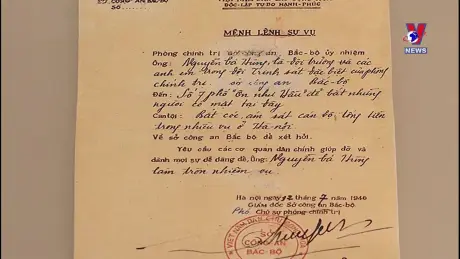 SỞ CÔNG AN BẮC-BỘ
SỐ
ĐỘC-LẬP TỰ DO HẠNH-PHÚC
V NEWS
MỆNH LỆNH SỰ VỤ
Phòng chính trị sở công an, Bắc-bộ ủy nhiệm
Ông: Nguyễn bá Hùng, là đội trưởng và các
anh em trong đội Trinh sát đặc biệt của phòng
chính trị sở công an Bắc-bộ
Đến: Số 7 phố "Ôn như Hầu" để bắt những
người có mặt tại đây
Can tội: Bắt cóc, ám sát cán bộ, tống tiền
trong nhiều vụ ở Hà nội
Về sở công an Bắc-bộ để xét hỏi.
Yêu cầu các cơ quan dân chính giúp đỡ và
dành mọi sự dễ dàng để, Ông: Nguyễn bá Hùng
làm tròn nhiệm vụ.
Hà nội ngày 12 tháng 7 năm 1946
GIÁM ĐỐC SỞ CÔNG AN BẮC-BỘ
Phó Chủ sự phòng chính trị
SỞ
CÔNG AN
BẮC-BỘ